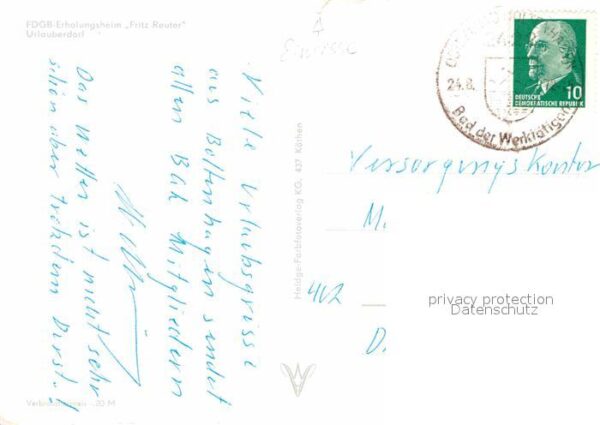 FDGB-Erholungsheim „Fritz Reuter"
Urlauberdorf
Viele Urlaubsgrüsse
aus Boltenhagen sendet
allen BKK Mitgliedern
Das Wetter ist nicht sehr
schön aber trotzdem Durst.!
Verbraucherpreis -,20 M
Heldge-Farbfotoverlag KG, 437 Köthen
24.8.
Bad der Werktätigen
DEUTSCHE
DEMOKRATISCHE REPUBLIK
10
Versorgungskontor
M.
402
D.
privacy protection
Datenschutz